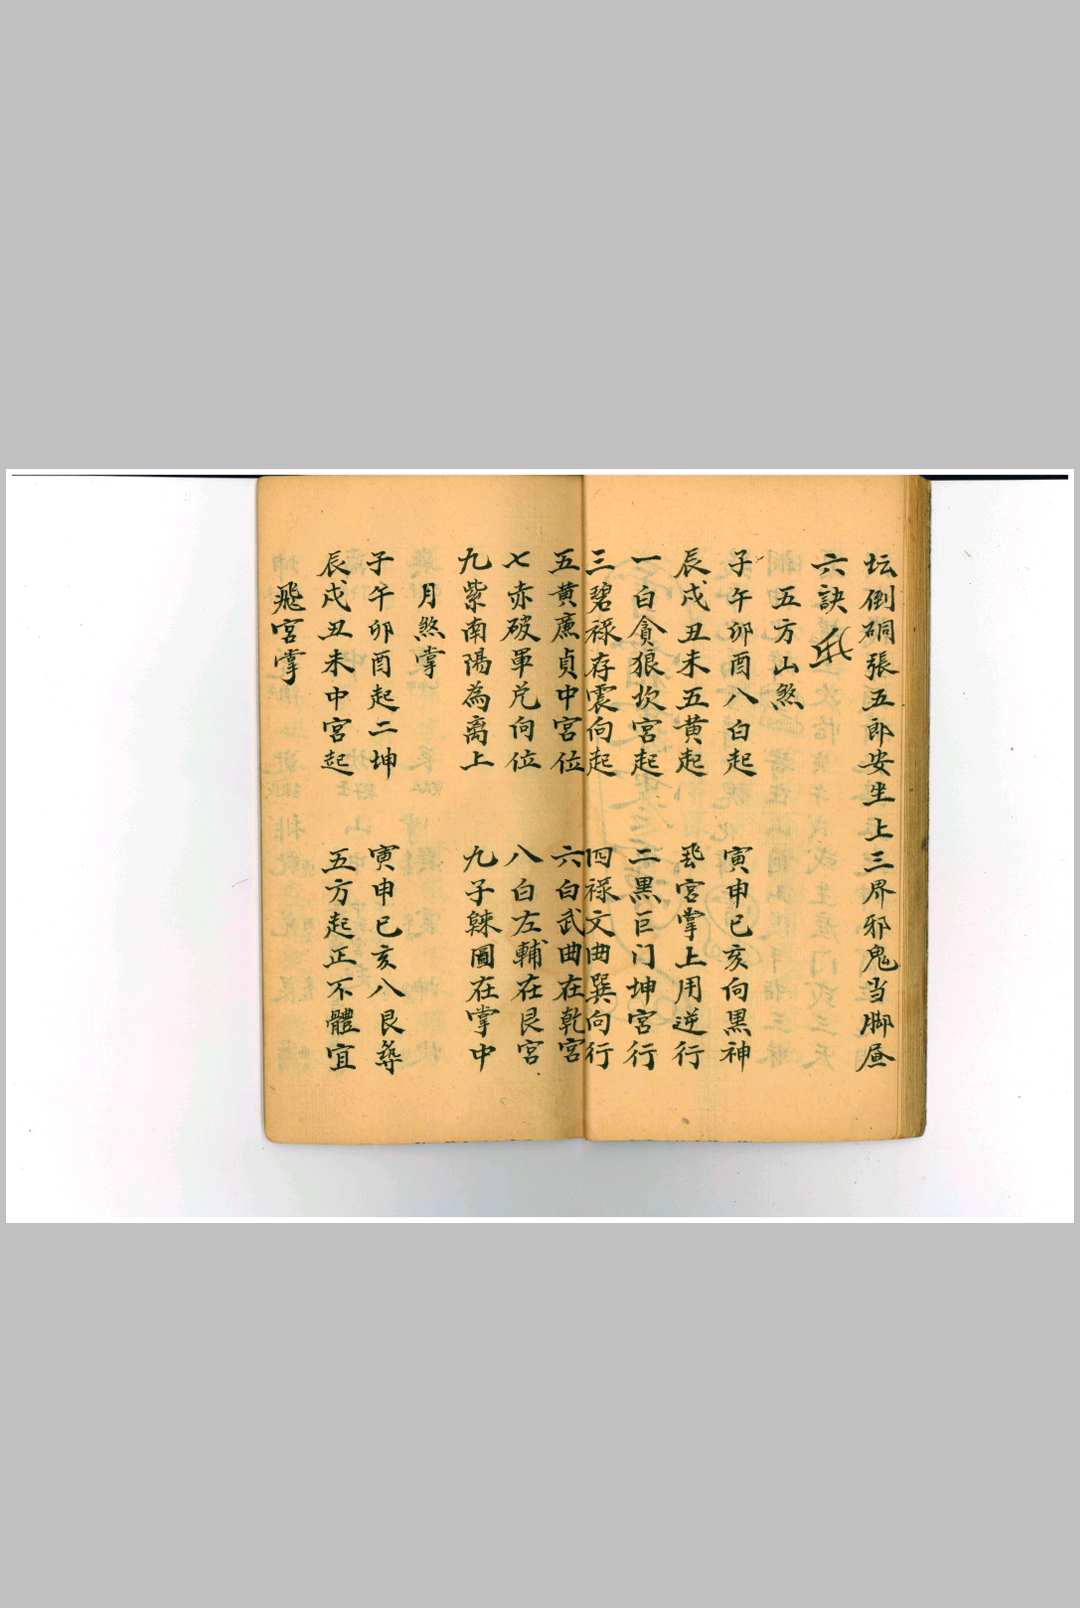 坛倒硐張五郎安坐上三界邪鬼当脚𦒱
六訣
五方山煞
子午卯酉八白起 寅申巳亥向黑神
辰戌丑未五黃起 飛宮掌上用逆行
一白貪狼坎宮起 二黑巨门坤宮行
三碧禄存震向起 四禄文曲巽向行
五黄廉貞中宮位 六白武曲在乾宮
七赤破軍兌向位 八白左輔在艮宮
九紫南陽為离上 九子圖在掌中
月煞掌
子午卯酉起二坤 寅申巳亥八艮尋
辰戌丑未中宮起 五方起正不體宜
飛宮掌